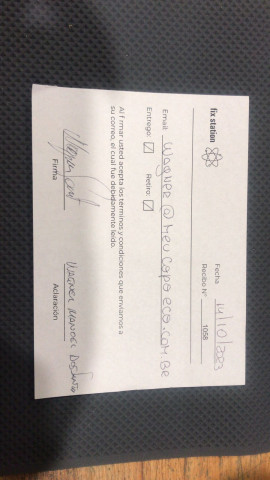 fix station
Fecha 14/10/2023
Recibo N° 1058
Email: Wagner@meucopoeco.com.br
Entrego: ☑ Retiro: ☑
Al Firmar usted acepta los términos y condiciones que enviamos a
su correo, el cual fue debidamente leído.
Wagner Manoel
Firma Aclaración